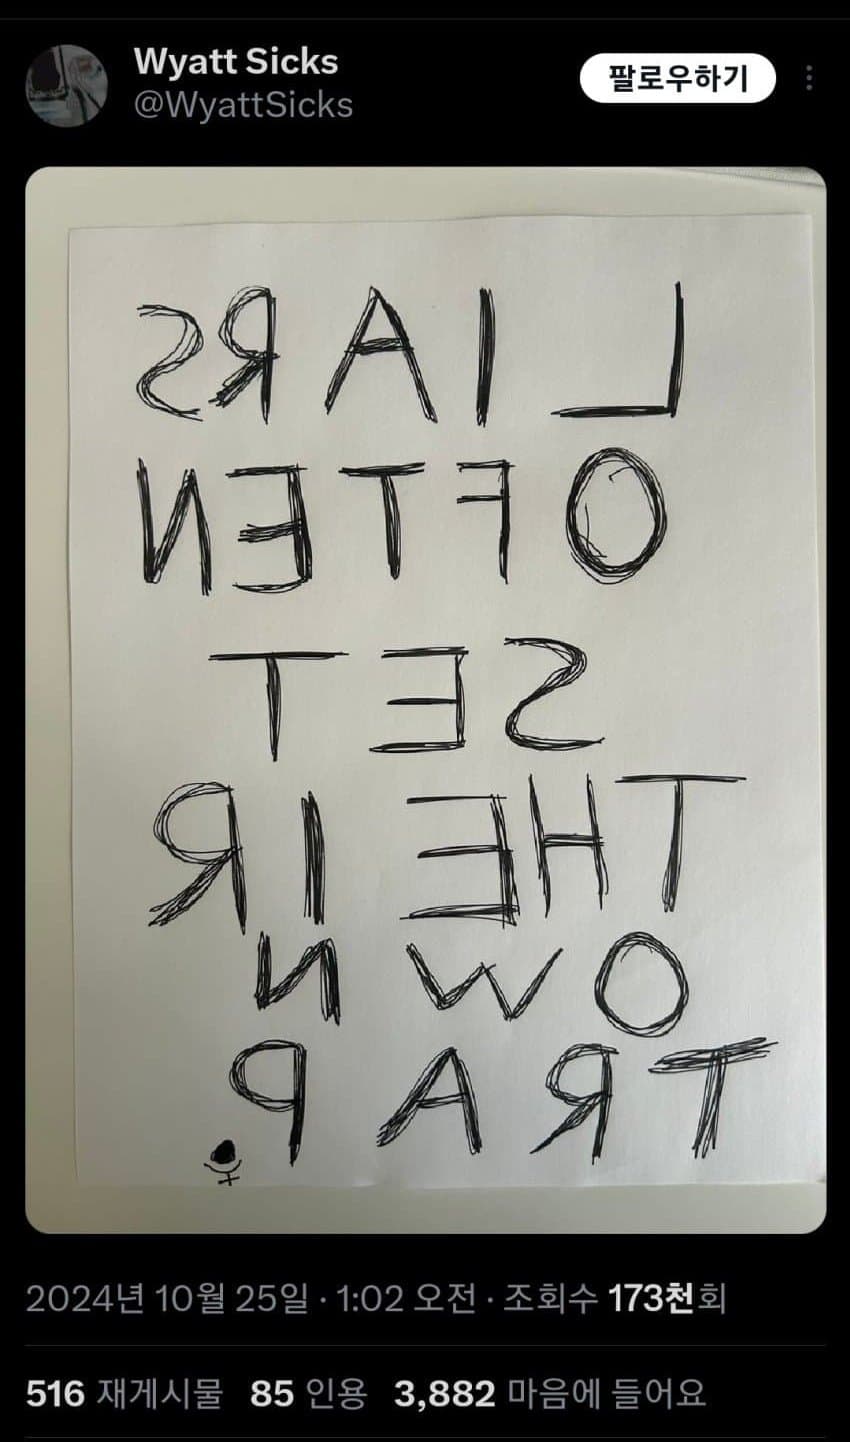 Wyatt Sicks
@WyattSicks
팔로우하기
LIARS
OFTEN
SET
THEIR
OWN
TRAP
2024년 10월 25일 · 1:02 오전 · 조회수 173천회
516 재게시물 85 인용 3,882 마음에 들어요